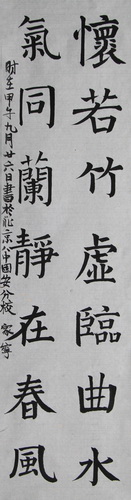 懷若竹虛臨曲水
氣同蘭靜在春風
時在甲午九月廿六日書於北京八中固安分校 家寧